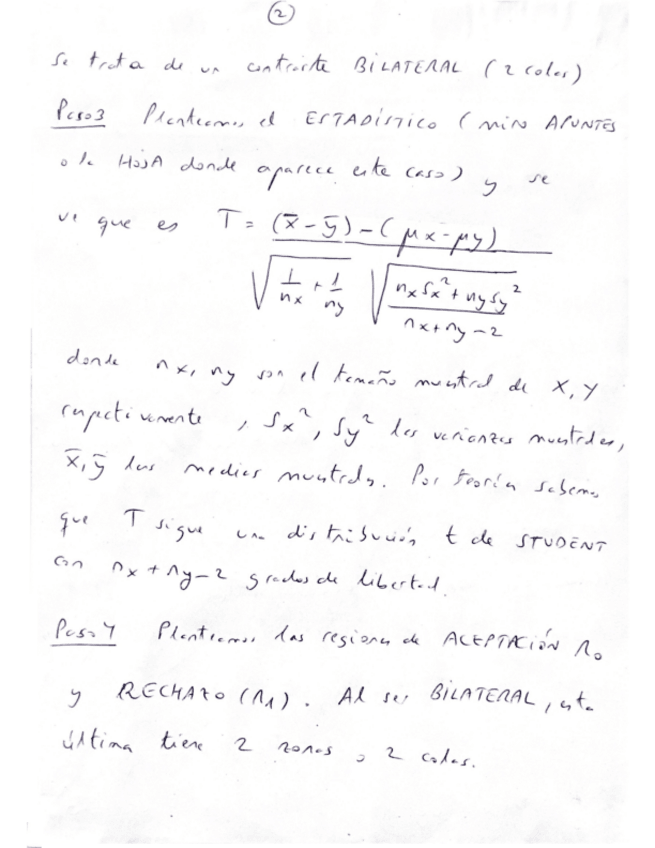 2
Se trata de un contraste BILATERAL (2 colas)
Paso 3 Planteamos el ESTADÍSTICO (MIRO APUNTES
o la HOJA donde aparece este caso) y se
ve que es T = (x̄ - ȳ) - (μx - μy) / √(1/nx + 1/ny) √((nx Sx² + ny Sy²)/(nx + ny - 2))
donde nx, ny son el tamaño muestral de X, Y
respectivamente, Sx², Sy² las varianzas muestrales,
x̄, ȳ las medias muestrales. Por teoría sabemos
que T sigue una distribución t de STUDENT
con nx + ny - 2 grados de libertad.
Paso 4 Planteamos las regiones de ACEPTACIÓN R0
y RECHAZO (R1). Al ser BILATERAL, esta
última tiene 2 zonas o 2 colas.